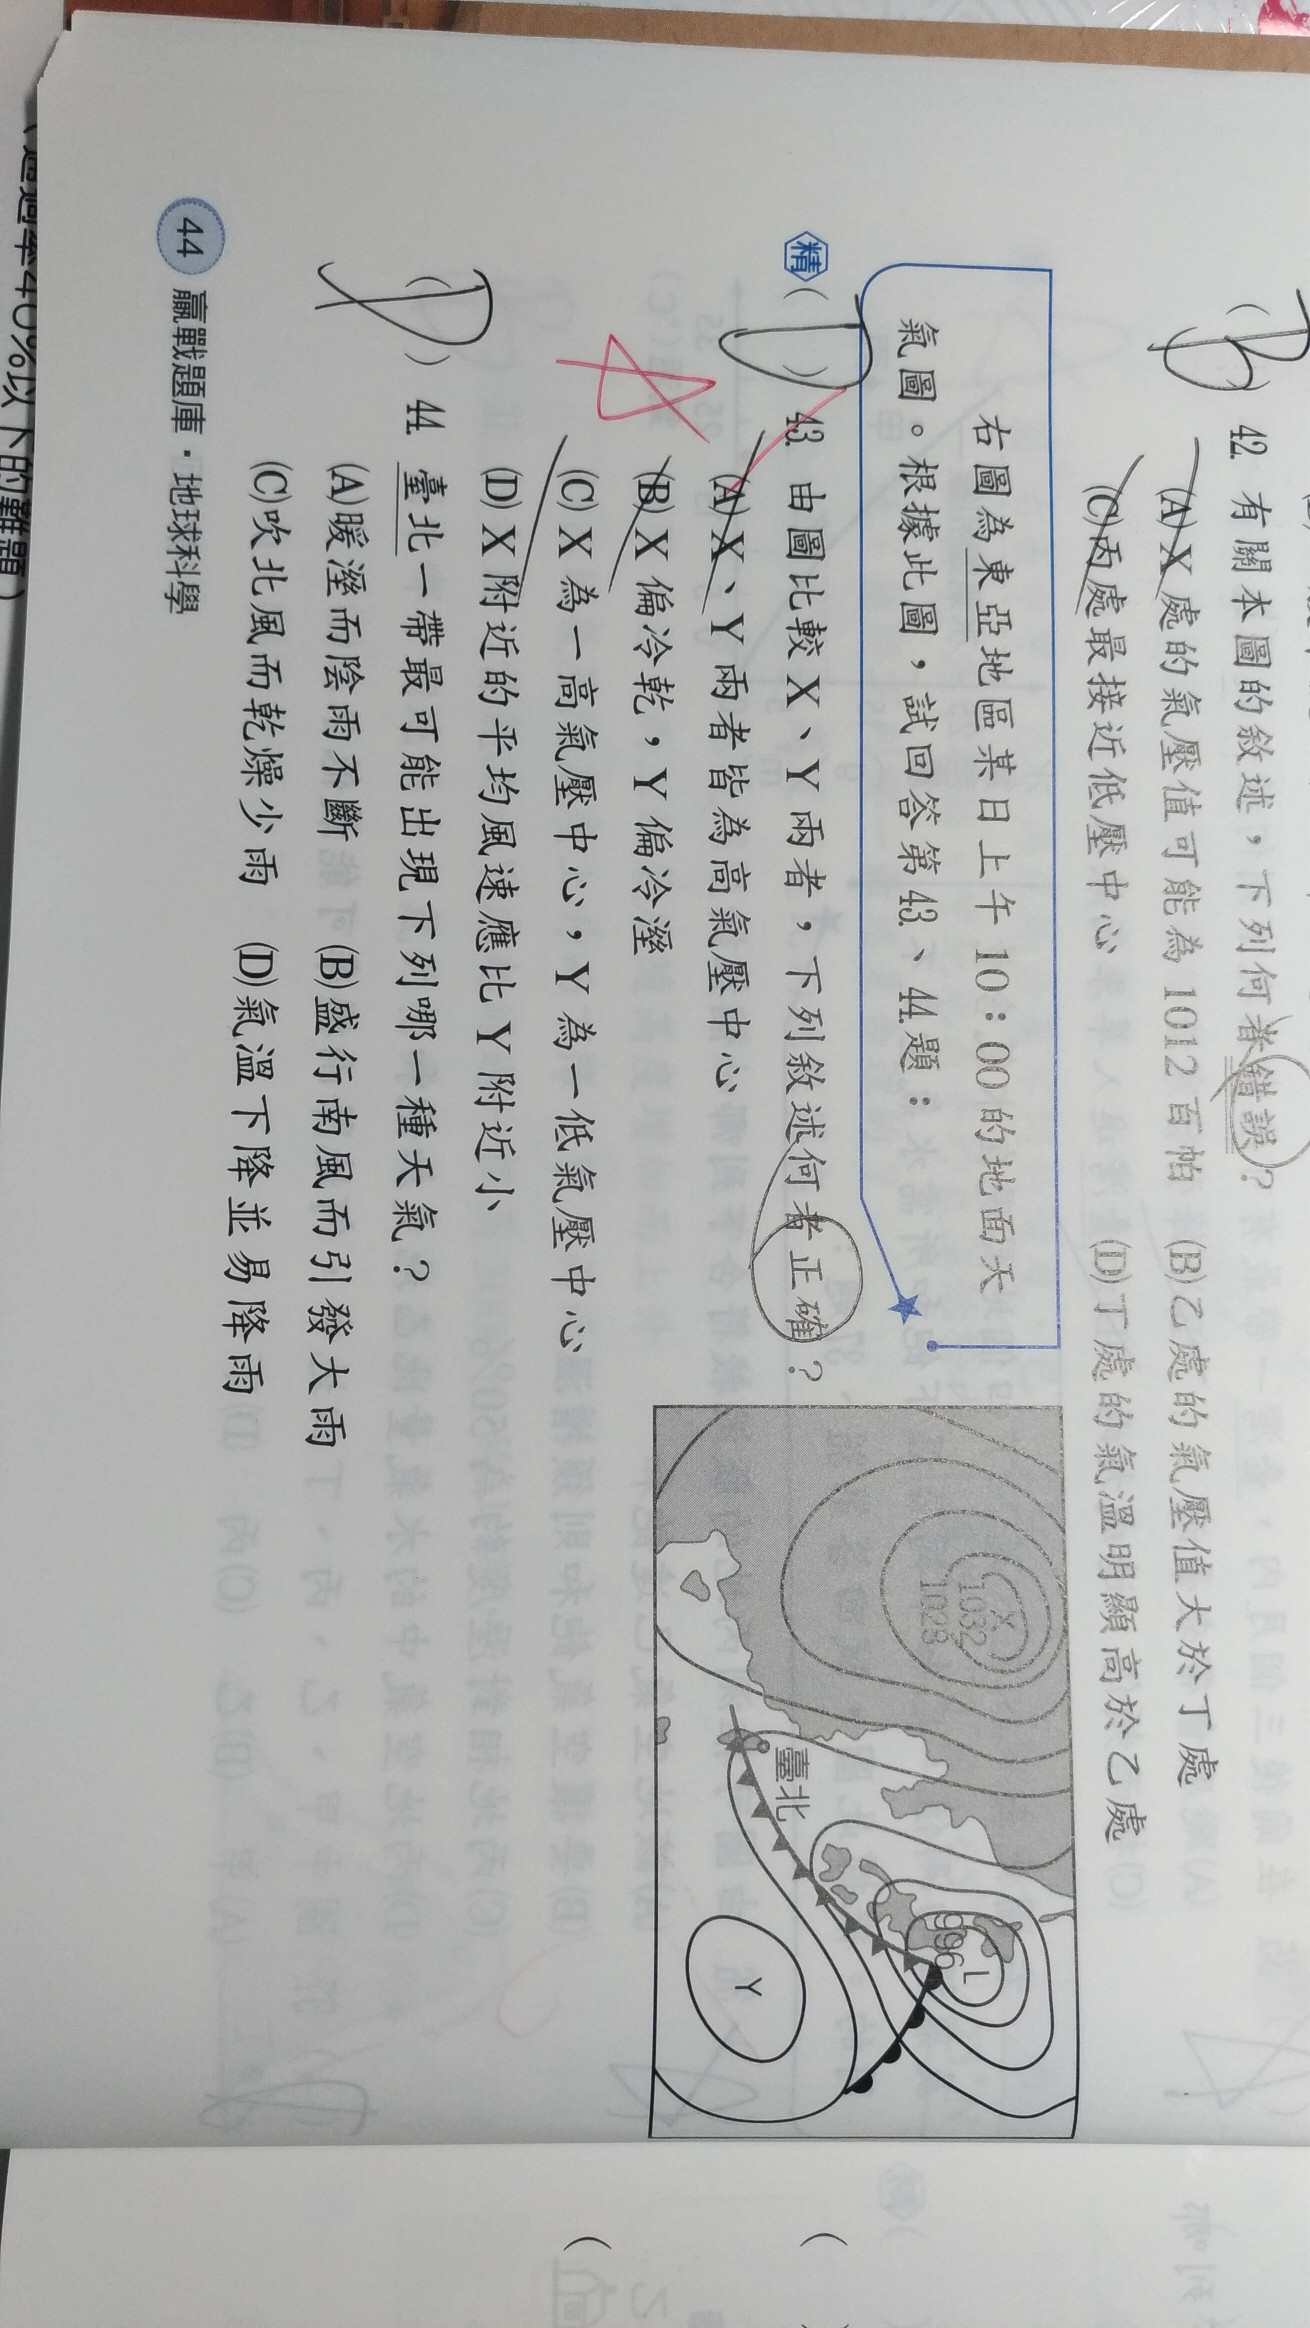 (B) 42. 有關本圖的敘述，下列何者錯誤？
(A) X 處的氣壓值可能為 1012 百帕 (B)乙處的氣壓值大於丁處
(C)丙處最接近低壓中心 (D)丁處的氣溫明顯高於乙處
右圖為東亞地區某日上午 10：00 的地面天
氣圖。根據此圖，試回答第 43.、44.題：
精 (D) 43. 由圖比較 X、Y 兩者，下列敘述何者正確？
A
(A) X、Y 兩者皆為高氣壓中心
(B) X 偏冷乾，Y 偏冷溼
(C) X 為一高氣壓中心，Y 為一低氣壓中心
(D) X 附近的平均風速應比 Y 附近小
X
1032
1028
臺北
996
L
Y
(D) 44. 臺北一帶最可能出現下列哪一種天氣？
(A)暖溼而陰雨不斷 (B)盛行南風而引發大雨
(C)吹北風而乾燥少雨 (D)氣溫下降並易降雨
44 贏戰題庫・地球科學
率40%以下的難題）